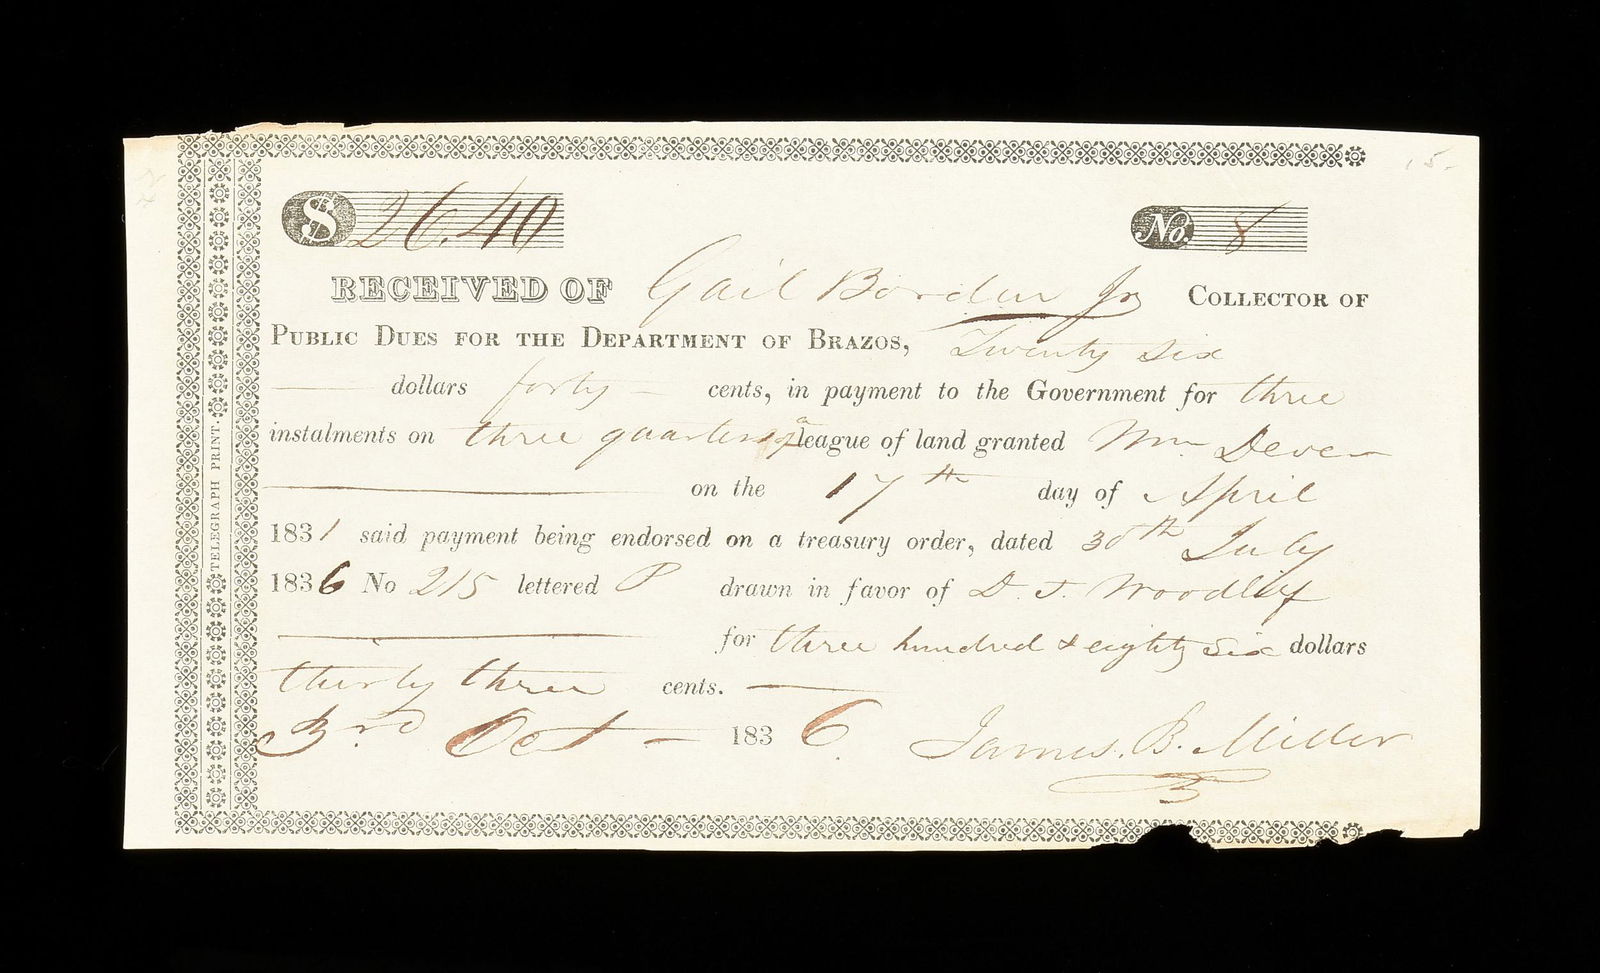 $ 26.40 No. 8
RECEIVED OF Gail Borden Jr COLLECTOR OF
PUBLIC DUES FOR THE DEPARTMENT OF BRAZOS, Twenty Six
dollars forty cents, in payment to the Government for three
instalments on three quarters of a league of land granted Wm Dever
on the 17th day of April
1831 said payment being endorsed on a treasury order, dated 30th July
1836 No 215 lettered P drawn in favor of D. J. Woodlief
for three hundred & eighty Six dollars
thirty three cents.
3rd Oct 1836 James. B. Miller
TELEGRAPH PRINT.